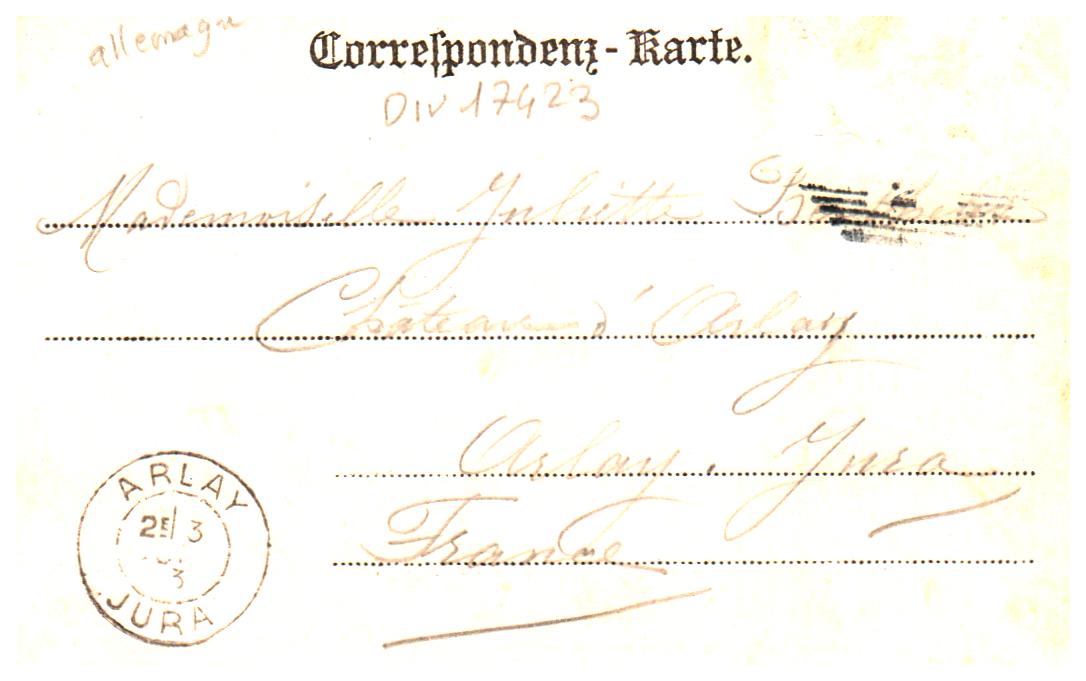 allemagne
Correspondenz-Karte.
DIV 17423
Mademoiselle Juliette
Château d'Arlay
Arlay. Jura
France
ARLAY
2E 3
3
JURA